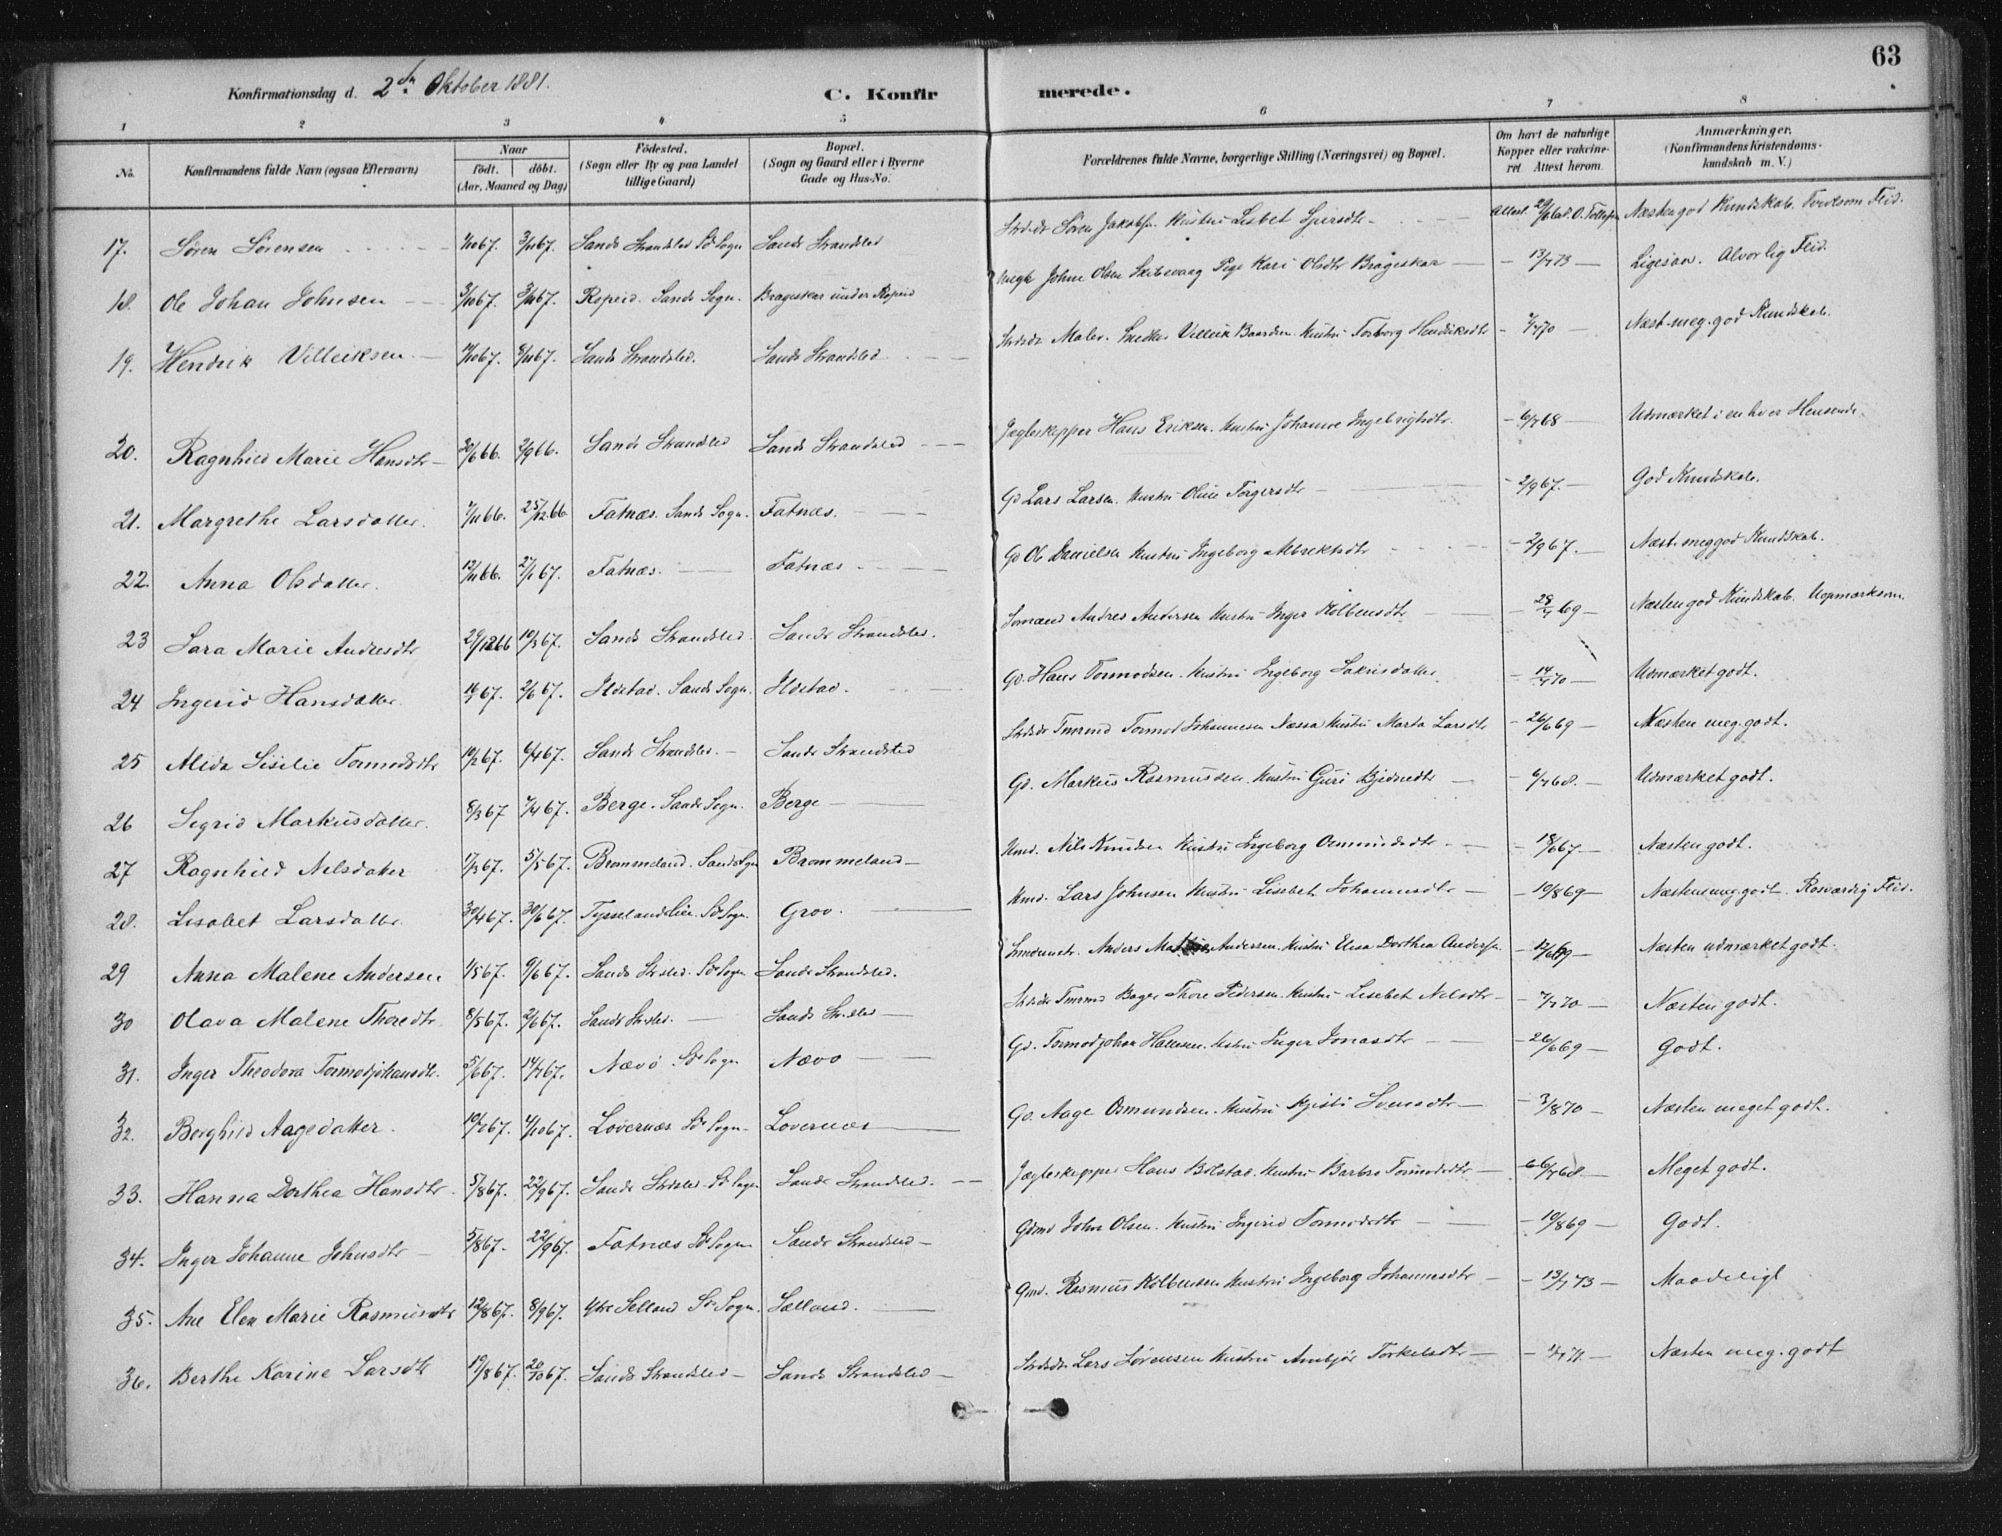 63
Konfirmationsdag d. 2den Oktober 1881.
C. Konfirmerede.
1 2 3 4 5 6 7 8
No. Konfirmandens fulde Navn (ogsaa Efternavn) Naar födt. döbt. (Aar, Maaned og Dag) Födested. (Sogn eller By og paa Landet tillige Gaard) Bopæl. (Sogn og Gaard eller i Byerne Gade og Hus-No. Forældrenes fulde Navne, borgerlige Stilling (Næringsvei) og Bopæl. Om havt de naturlige Kopper eller vakcineret Attest herom. Anmærkninger. (Konfirmandens Kristendomskundskab m. V.)
17. Søren Sørensen 3/11 67. Sands Strandsted Sds Sogn Sands Strandsted Søren Jakobsen Hustru Lisbet Næsten god Kundskab. Flid.
18. Ole Johan Johnsen 3/10 67. 3/11 67. Ropeid. Sands Sogn. Brageskar under Ropeid John Olsen Pige Kari Olsdtr Brageskar 13/7 73 Ligesaa. Alvorlig Flid.
19. Hendrik Villeiksen Sands Strandsted. Sands Strandsted Maler. Snedker Villeik Baardsen Hustru Torborg Hendriksdtr 70 Næst. meg. god Kundskab.
20. Ragnhild Marie Hansdtr 30/6 66. 2/9 66. Sands Strandsted Sands Strandsted Jægteskipper Hans Eriksen. Hustru Johanne Ingebrigtsdtr 6/7 68 Udmærket i enhver Henseende.
21. Margrethe Larsdatter. 25/12 66 Fatnæs. Sands Sogn. Fatnæs. Gd Lars Larsen. Hustru Oline Torgersdtr 2/9 67. God Kundskab.
22. Anna Olsdatter. 12/11 66. 27/1 67. Fatnæs. Fatnæs Gd Ole Danielsen Hustru Ingeborg 2/9 67. Næst. meg god Kundskab.
23 Sara Marie Andresdtr 29/12 66 10/3 67. Sands Strandsted. Sands Strandsted. Andres Andersen Hustru Inger Kolbensdtr 28/7 69 Næsten god Kundskab. Uopmærksom.
24 Ingerid Hansdatter. 67. 2/6 67. Ilstad. Sands Sogn. Ilstad. Gd. Hans Tormodsen. Hustru Ingeborg Sakrisdatter 14/7 70 Udmærket godt.
25 Alida Siselie Tormodsdtr 10/2 67. 67. Sands Strandsted. Sands Strandsted Tormod Johannesen Næssa Hustru Marta Larsdtr 26/6 69 Næsten meg. godt.
26 Sigrid Markusdatter. 8/3 67 7/4 67. Berge. Sands Sogn. Berge Gd. Markus Rasmussen. Hustru Guri 6/7 68. Udmærket godt.
27 Ragnhild Nilsdatter 17/3 67. 5/5 67. Brommeland. Sands Sogn Brommeland Hmd. Nils Knudsen Hustru Ingeborg Osmundsdtr. 18/6 67. Næsten godt.
28. Lisabet Larsdatter. 30/4 67. 30/6 67. Sds Sogn. Grov. Hmd. Lars Johnsen Hustru Lisebet Johannesdtr 10/8 69 Næsten meg godt. Rosværdig Flid.
29 Anna Malene Andersen 1/5 67. 9/6 67. Sands Strsted. Sds Sogn. Sands Strandsted. Anders Andersen. Hustru Elisa Dorthea Andersen 12/6 69 Næsten udmærket godt.
30 Olava Malene Thoredtr. 8/5 67. 2/6 67. Sands Strsted. Sands Strsted Bager Thore Pedersen. Hustru Lisebet Nilsdtr 7/7 70 Næsten godt.
31. Inger Theodora Tormodjohansdtr. 5/6 67. 14/7 67. Nævø Sds Sogn Nævø Gd. Tormodjohan Hallesen. Hustru Inger Jonasdtr 26/6 69 Godt.
32. Borghild Aagedatter. 67. 4/10 67. Lovernæs Sds Sogn Lovernæs Gd. Aage Osmundsen. Hustru Kjisti 3/8 70 Næsten meget godt.
33. Hanna Dorthea Hansdtr. 5/8 67. 22/9 67. Sands Strsted Sds Sogn Sands Strandsted. Jægteskipper Hans Bolstad. Hustru Barbro Tormodsdtr 6/7 68. Meget godt.
34. Inger Johanne Johnsdtr 5/8 67. 22/9 67. Fatnæs Sds Sogn Sands Strandsted Gdmd John Olsen. Hustru Ingerid Tormodsdtr 10/8 69 Godt.
35. Ane Elen Marie Rasmusdtr 12/8 67. 8/9 67. Ytre Selland Sds Sogn. Sælland. Gmd. Rasmus Kolbensen Hustru Ingeborg Johannesdtr 13/7 73 Maadeligt
36. Berthe Karine Larsdtr 19/8 67. 20/10 67. Sands Strandsted Sands Strandsted Lars Sørensen Hustru Anbjør Torkelsdtr 71. Næsten meg. godt